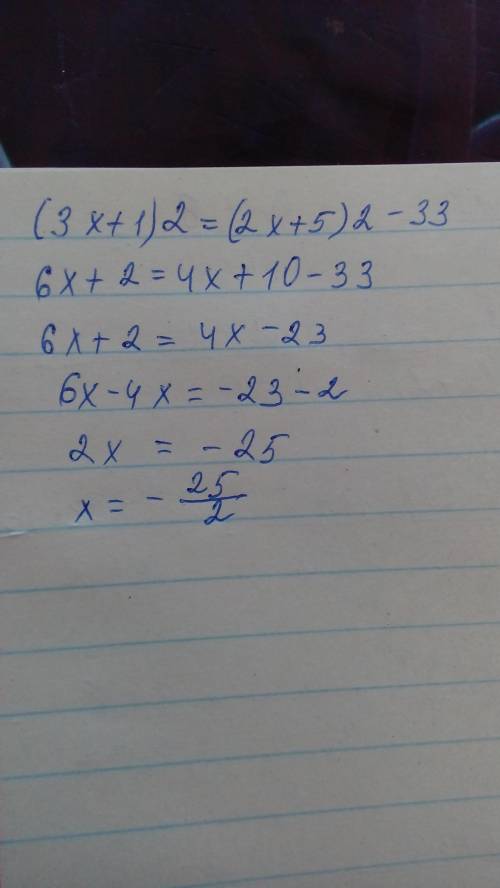 (3x+1)2=(2x+5)2-33
6x+2=4x+10-33
6x+2=4x-23
6x-4x=-23-2
2x=-25
x=-25/2